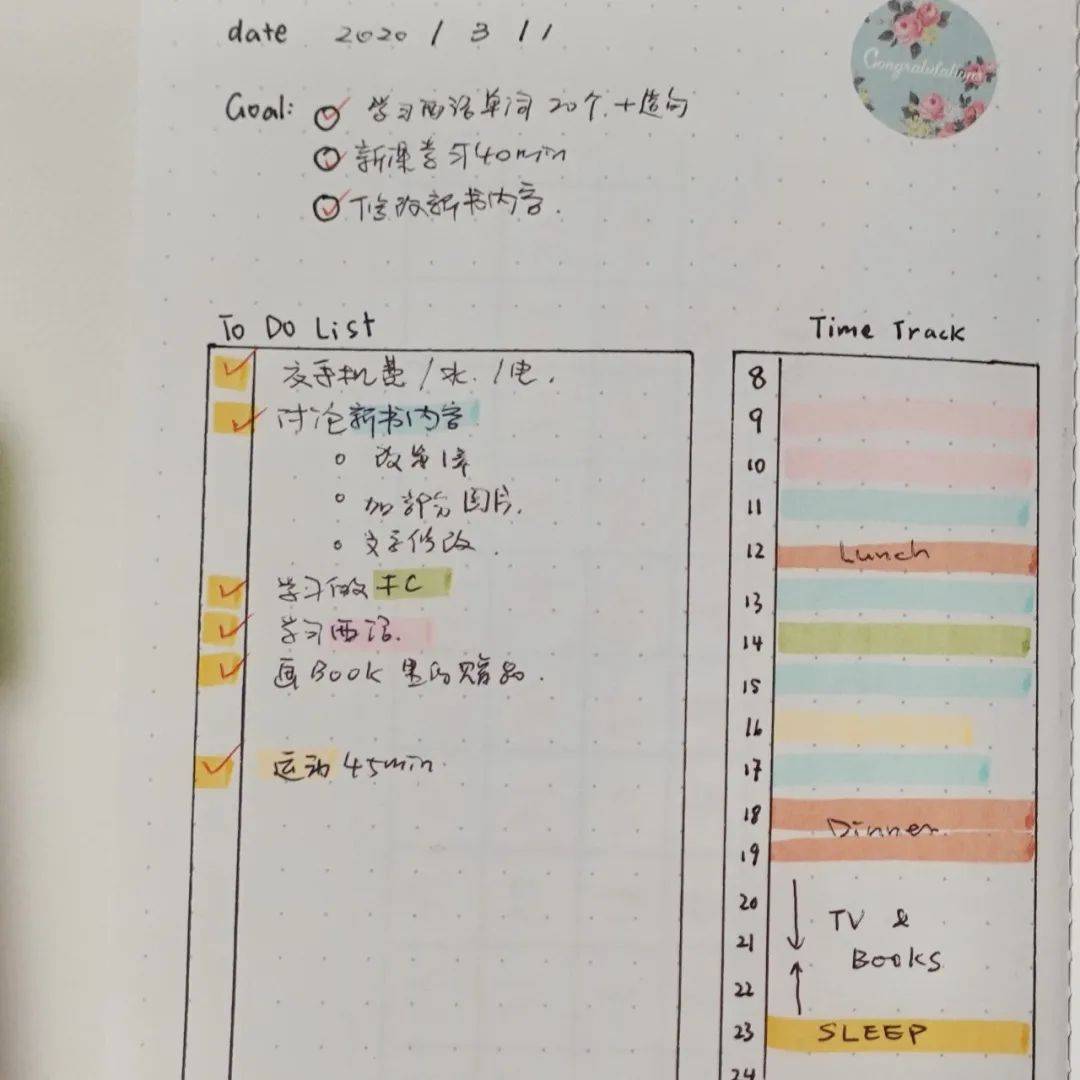 date 2020 / 3 / 1
Congratulations
Goal: 学习西语单词 20个.+造句
新课学习40min
修改新书内容.
To Do List
交手机费/水./电.
讨论新书内容
改单词
加部分图片.
文字修改.
学习做
学习西语.
画Book里的赠品.
运动45min.
Time Track
8
9
10
11
12 Lunch
13
14
15
16
17
18 Dinner.
19
20 TV &
21 Books
22
23 SLEEP
24